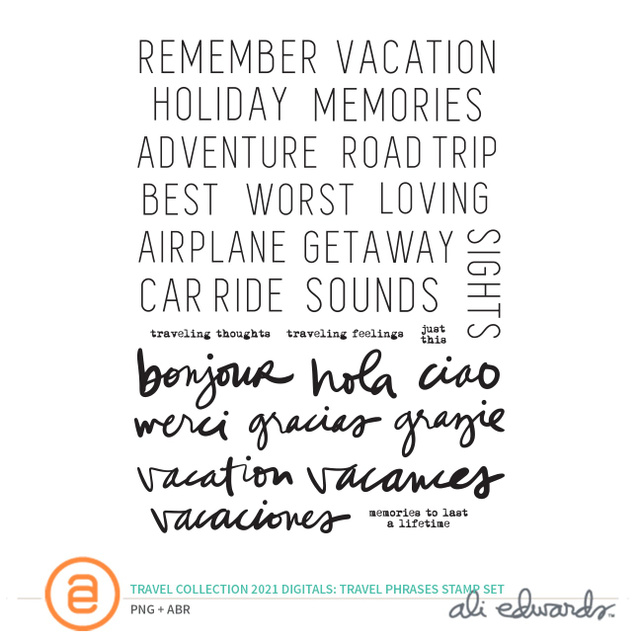 REMEMBER VACATION
HOLIDAY MEMORIES
ADVENTURE ROAD TRIP
BEST WORST LOVING
AIRPLANE GETAWAY
SIGHTS
CAR RIDE SOUNDS
traveling thoughts traveling feelings just
this
bonjour hola ciao
merci gracias grazie
vacation vacances
vacaciones memories to last
a lifetime
TRAVEL COLLECTION 2021 DIGITALS: TRAVEL PHRASES STAMP SET
PNG + ABR
a
ali edwards